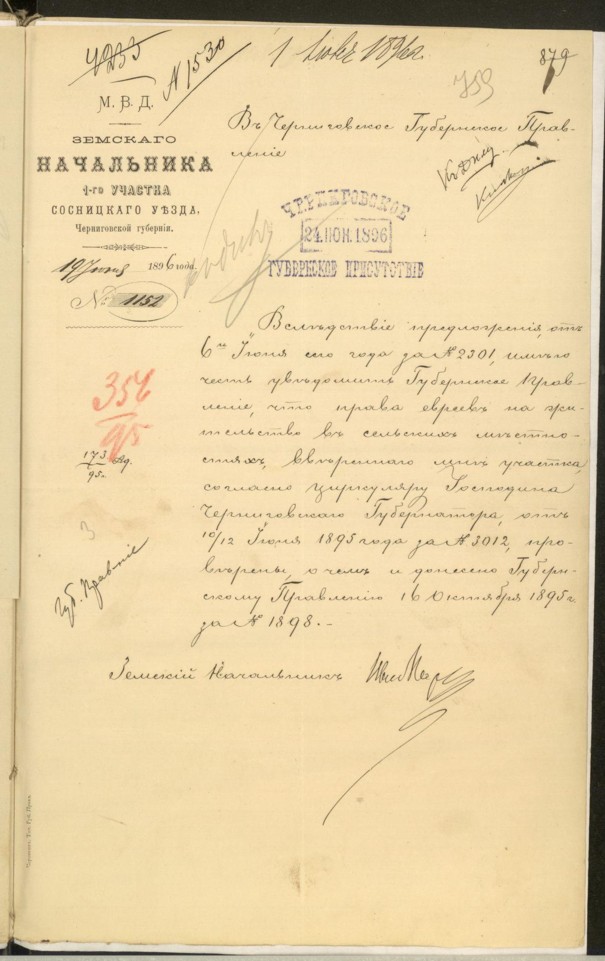 1233
N 1530
1 Июля 1896 г.
879
759
М. В. Д.
ЗЕМСКАГО
НАЧАЛЬНИКА
1-го УЧАСТКА
СОСНИЦКАГО УѢЗДА,
Черниговской губерніи.
19 Іюня 1896 года.
№ 1152
Въ Черниговское Губернское Прав-
леніе
Къ дѣлу
ЧЕРНИГОВСКОЕ
24.ІЮН.1896
ГУБЕРНСКОЕ ПРИСУТСТВІЕ
Вслѣдствіе предложенія, отъ
6го Іюня сего года за N 2301, имѣю
честь увѣдомить Губернское Прав-
леніе, что права евреевъ на жи-
тельство въ сельскихъ мѣстно-
стяхъ, ввѣреннаго мнѣ участка,
согласно циркуляру Господина
Черниговскаго Губернатора, отъ
10/12 Іюня 1895 года за N 3012, про-
вѣрены, о чемъ и донесено Губерн-
скому Правленію 16 Октября 1895 г.
за N 1898.-
356
95
173
95г.
3
Губ. Правленіе
Земскій Начальникъ